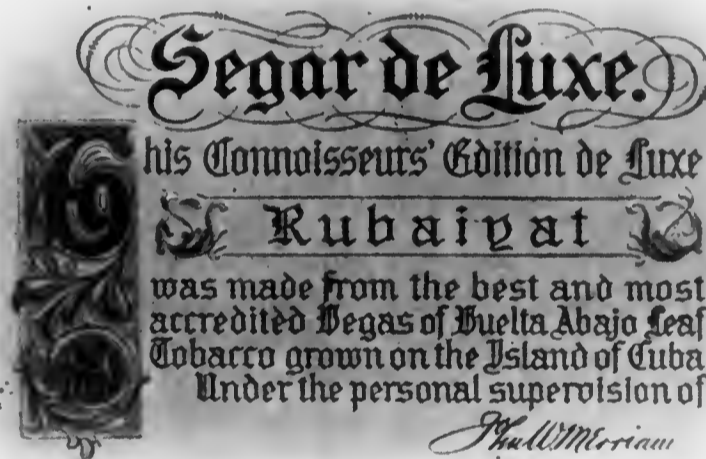 Segar de Luxe.
This Connoisseurs' Edition de Luxe
Rubaiyat
was made from the best and most
accredited Vegas of Vuelta Abajo Leaf
Tobacco grown on the Island of Cuba
Under the personal supervision of
John W. Merriam